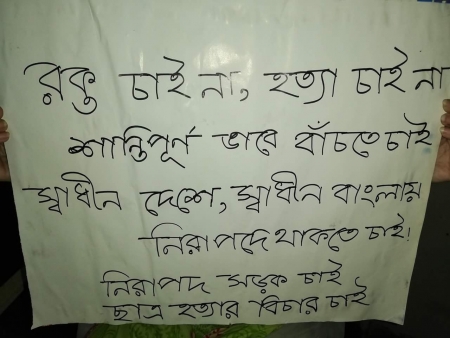 রক্ত চাই না, হত্যা চাই না
শান্তিপূর্ণ ভাবে বাঁচতে চাই
স্বাধীন দেশে, স্বাধীন বাংলায়
নিরাপদে থাকতে চাই।
নিরাপদ সড়ক চাই
ছাত্র হত্যার বিচার চাই